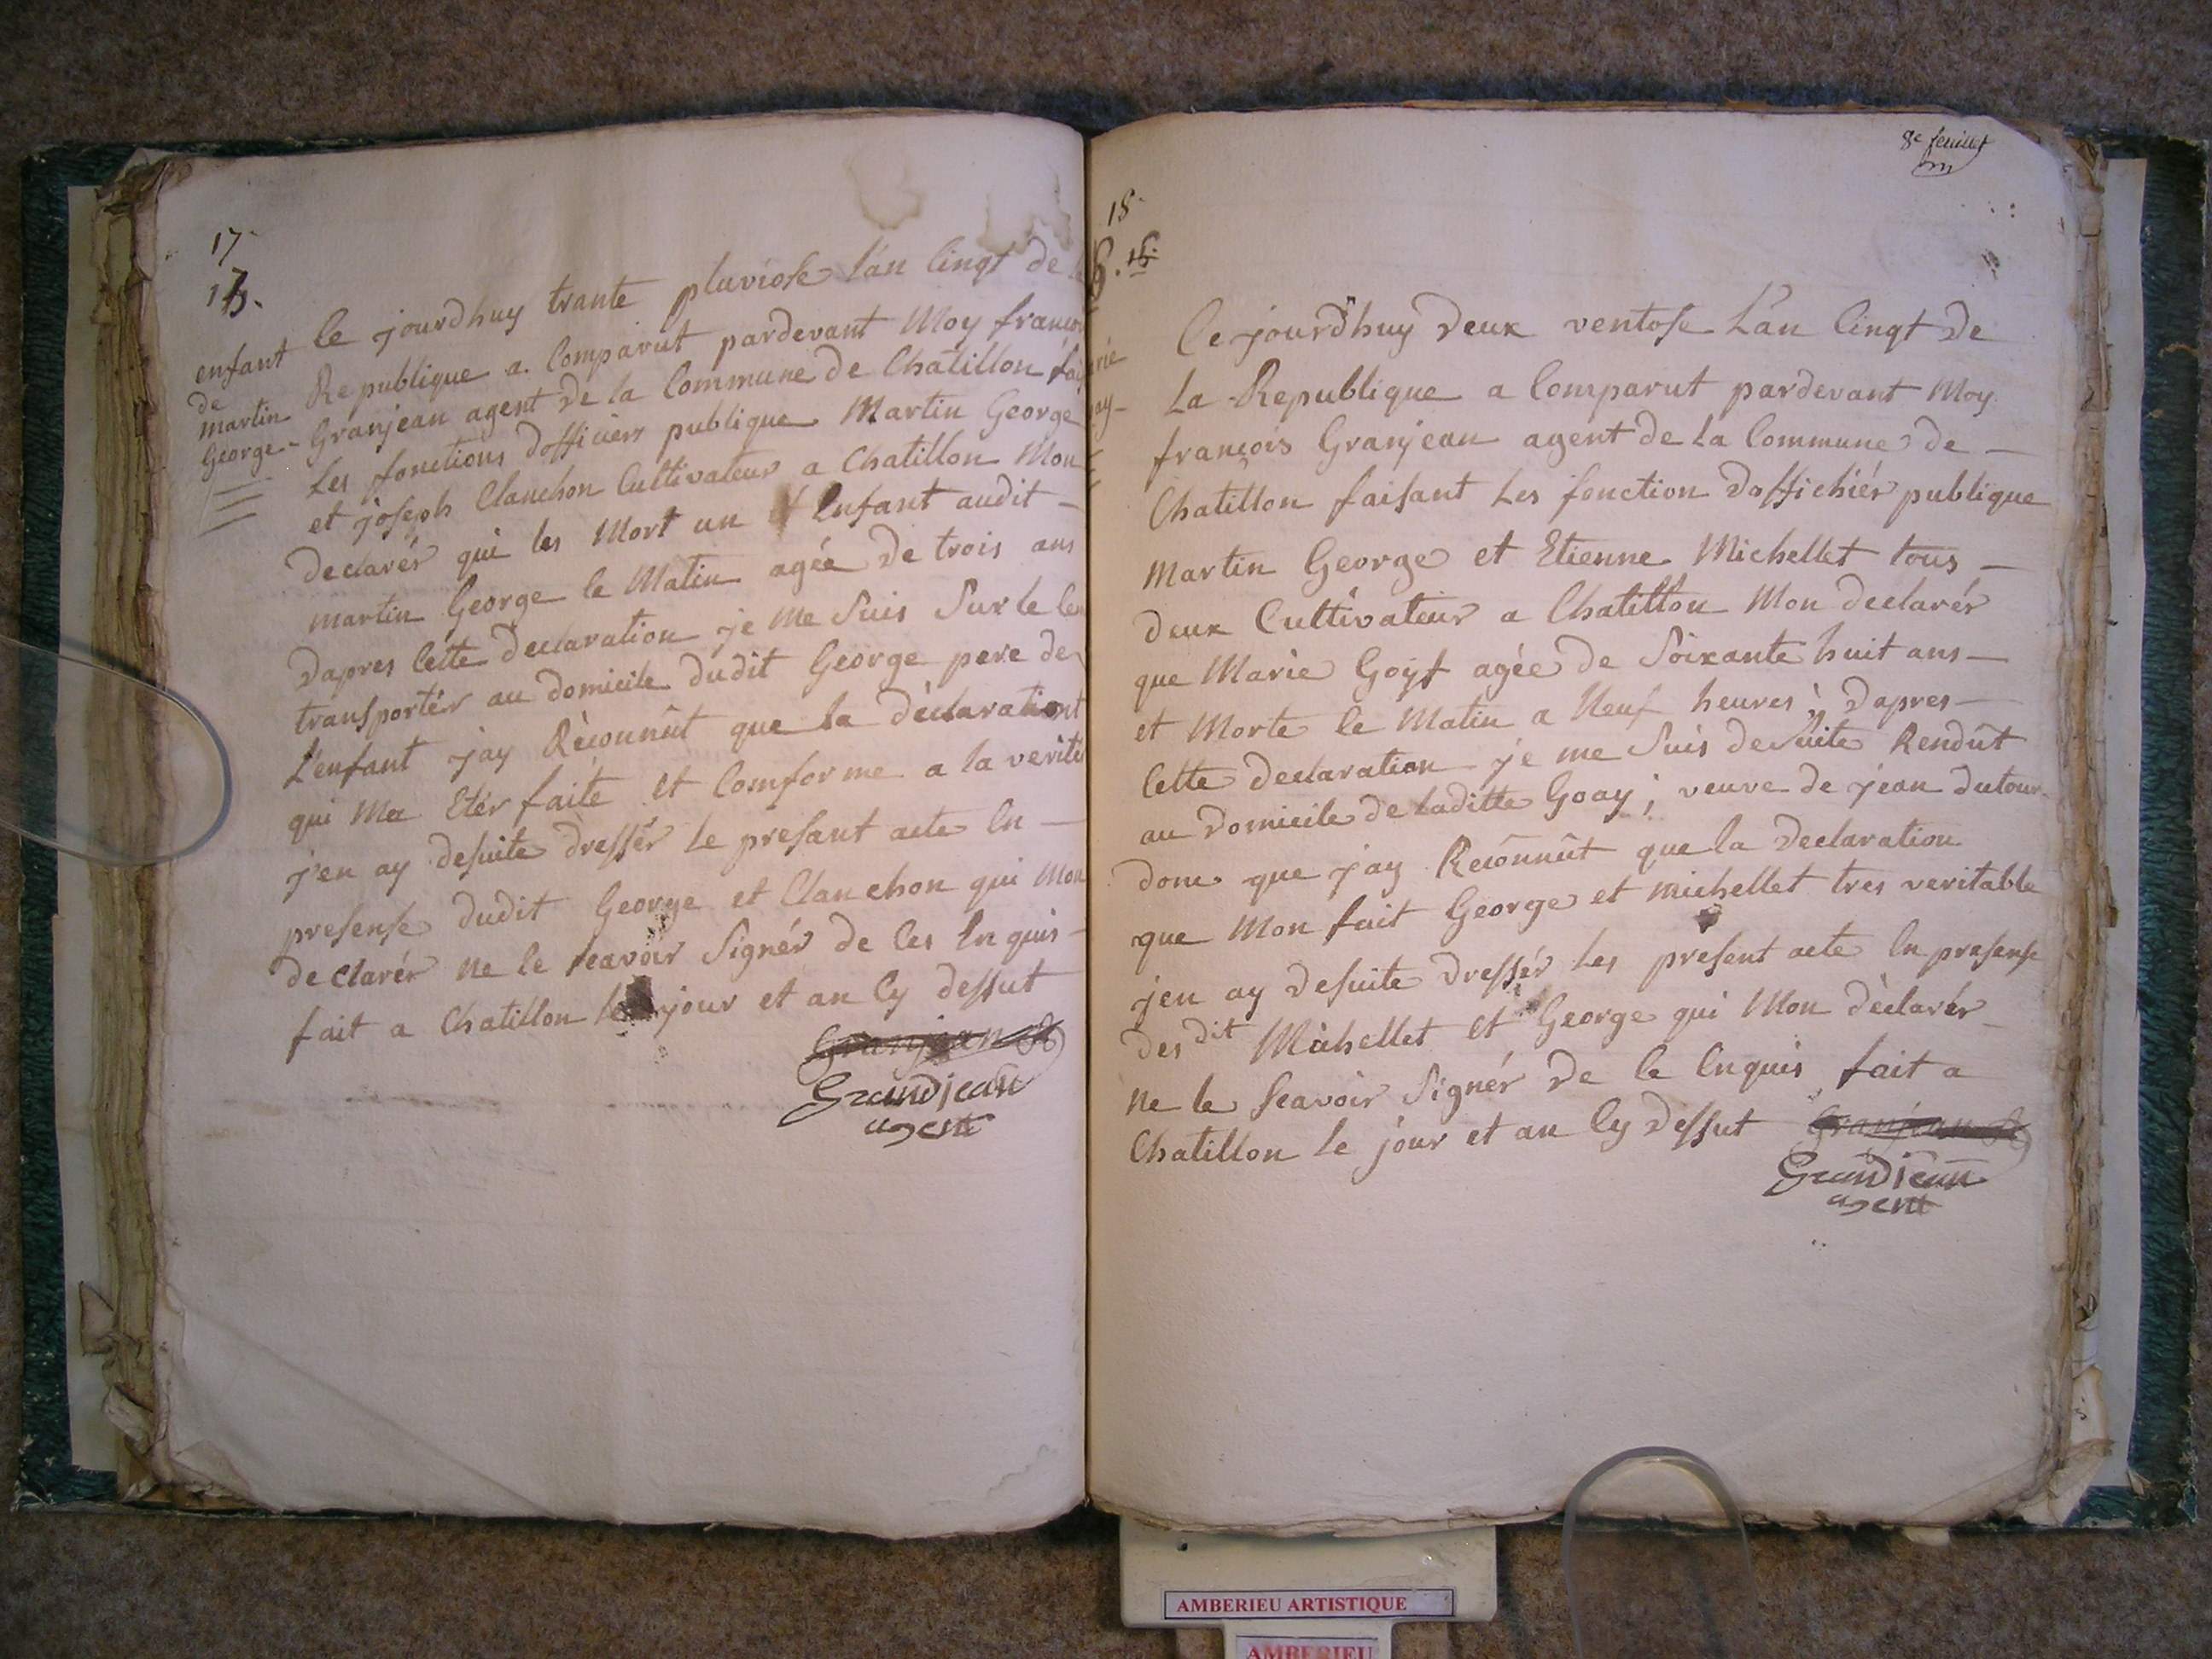 17.
enfant
de
martin
George -
Ce jourdhuy trante pluviose L'an Cinqt de
Republique a Comparut pardevant Moy françois
Granjean agent de la Commune de Chatillon
Les fonctions dofficierr publique Martin George
et joseph Clanchon Cultivateur a Chatillon Mon
declarér qui les Mort un Enfant audit -
martin George le Matin agée de trois ans
Dapres Cette declaration je me Suis Sur le
transportér au domicile dudit George pere de
L'enfant jay Réconnût que la déclarationt
qui Ma Etér faite et Comforme a la verité
j'en ay desuite dressér le presant acte En -
presense dudit George et Clanchon qui Mon
declarér ne le scavoir Signér de Ces Enquis -
fait a Chatillon le jour et an Cy dessut
Granjean
Grandjean
agent
8e feuillet
18.
Ce jourdhuy Deux ventose L'an Cinqt de
La Republique a Comparut pardevant Moy
françois Granjean agent de la Commune de -
Chatillon faisant Les fonction Doffichiér publique
Martin George et Etienne Michellet tous -
deux Cultivateur a Chatillon Mon declarér
que Marie Goyt agée de Soixante huit ans -
et Morte le Matin a Neuf heures ; Dapres -
Cette declaration je me Suis desuite Rendût
au Domicile de Laditte Goay ; veuve de jean dutour-
donc que jay Reconnût que la Declaration
que Mon fait George et Michellet tres veritable
jen ay desuite dressér Les present acte En presense
des dit Michellet et George qui Mon déclarér -
ne le Scavoir Signér de Ce Enquis fait a
Chatillon le jour et an Cy dessut Granjean
Grandjean
agent
AMBERIEU ARTISTIQUE
AMBERIEU